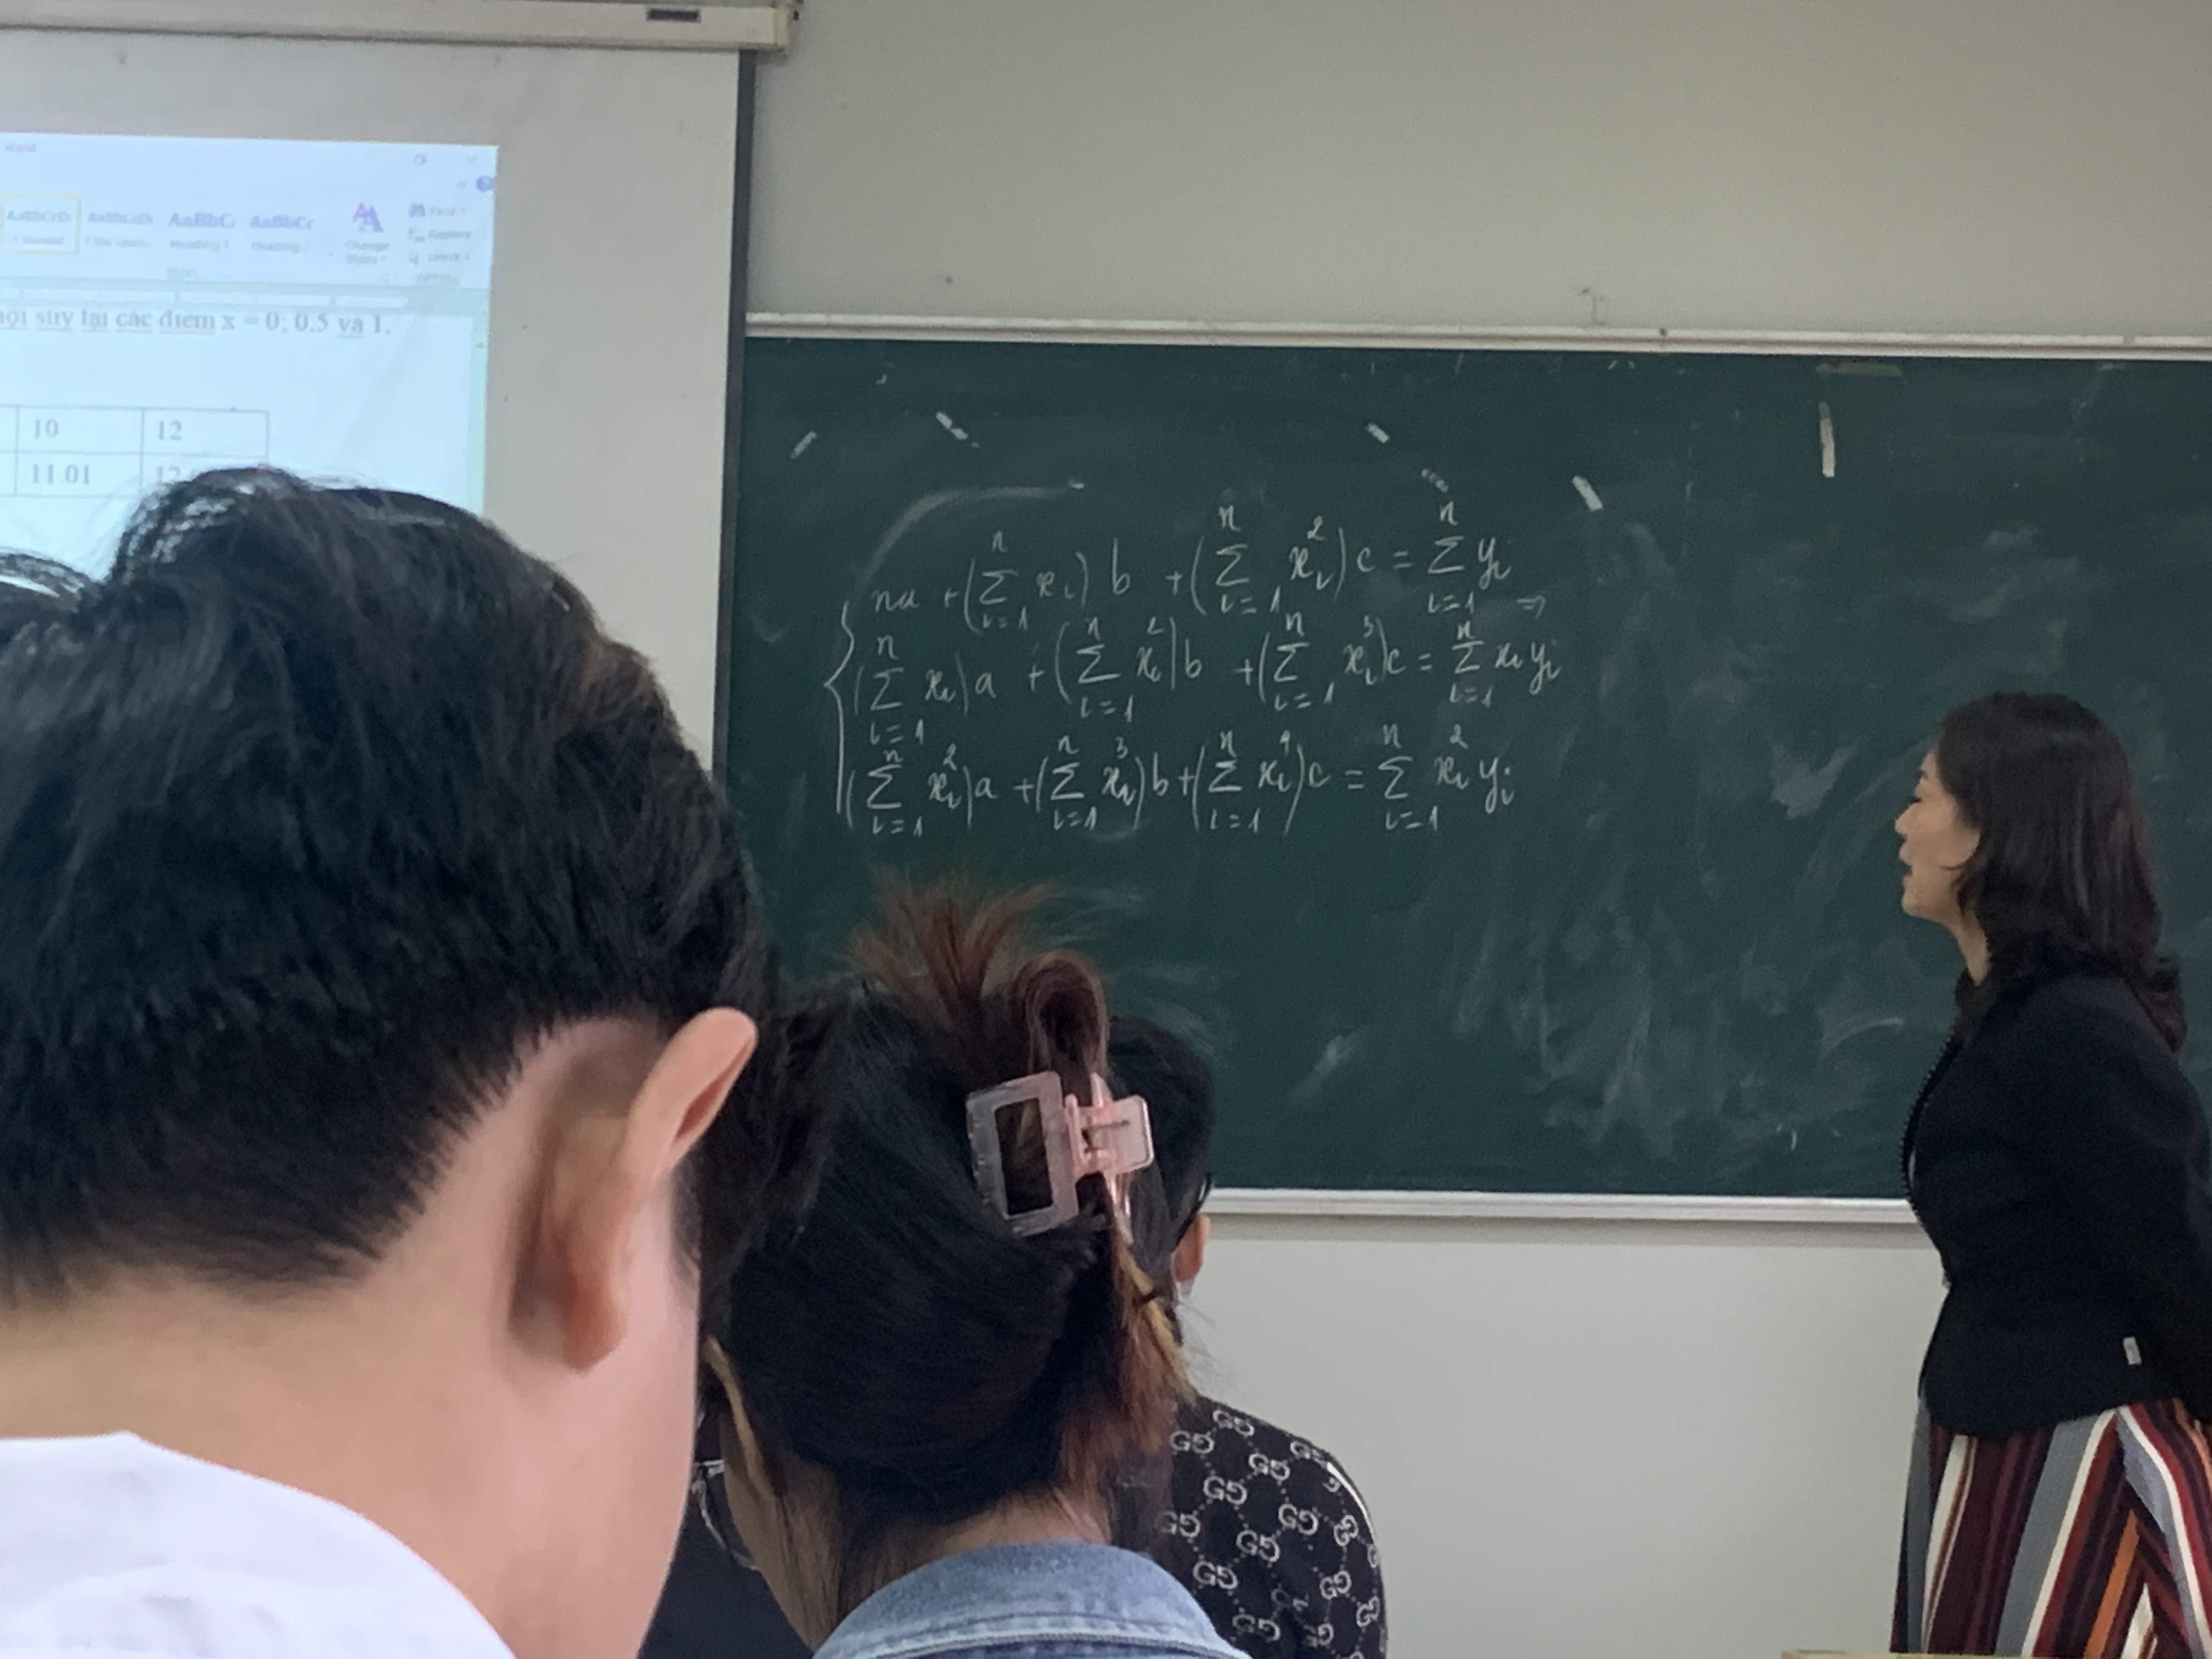 AaBbCcDc AaBbCcDc AaBbC AaBbCc
Heading 1
Change
Styles
Find
Replace
Select
suy tại các điểm x = 0; 0.5 và 1.
10 12
11.01 12
na + (∑_{i=1}^{n} x_i) b + (∑_{i=1}^{n} x_i^2) c = ∑_{i=1}^{n} y_i ⇒
(∑_{i=1}^{n} x_i) a + (∑_{i=1}^{n} x_i^2) b + (∑_{i=1}^{n} x_i^3) c = ∑_{i=1}^{n} x_i y_i
(∑_{i=1}^{n} x_i^2) a + (∑_{i=1}^{n} x_i^3) b + (∑_{i=1}^{n} x_i^4) c = ∑_{i=1}^{n} x_i^2 y_i